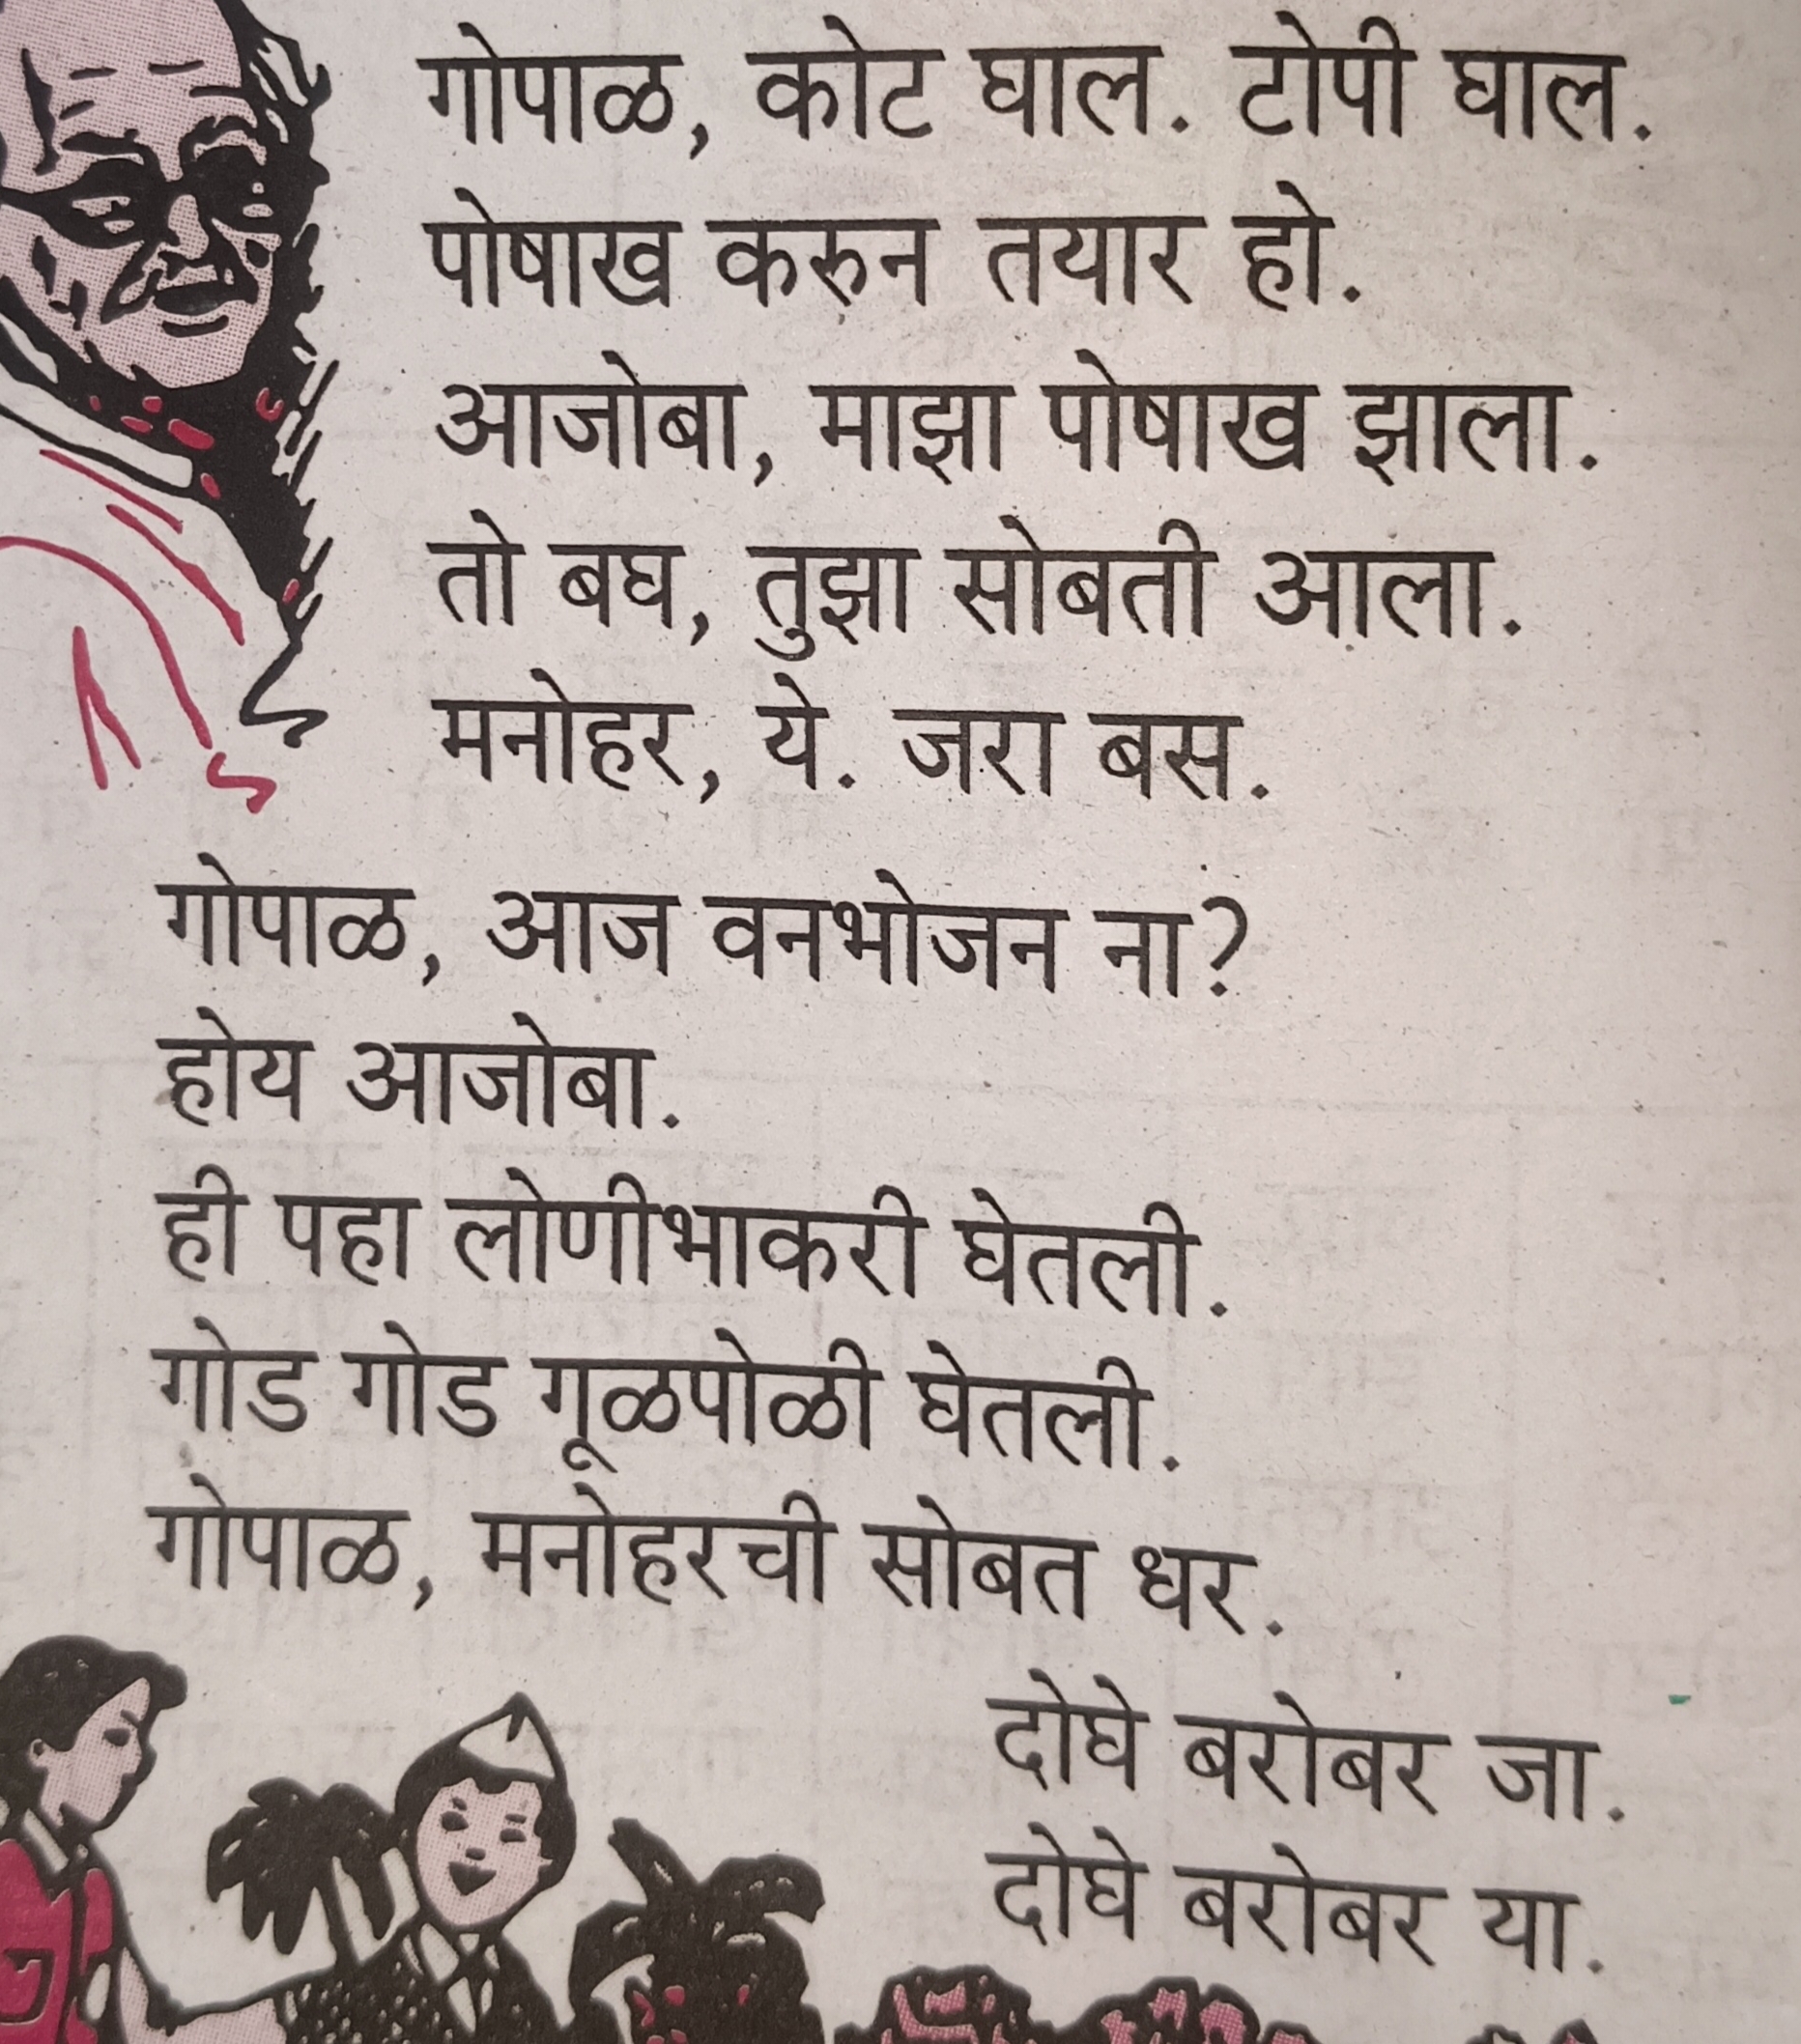 गोपाळ, कोट घाल. टोपी घाल.
पोषाख करुन तयार हो.
आजोबा, माझा पोषाख झाला.
तो बघ, तुझा सोबती आला.
मनोहर, ये. जरा बस.
गोपाळ, आज वनभोजन ना?
होय आजोबा.
ही पहा लोणीभाकरी घेतली.
गोड गोड गूळपोळी घेतली.
गोपाळ, मनोहरची सोबत धर.
दोघे बरोबर जा.
दोघे बरोबर या.